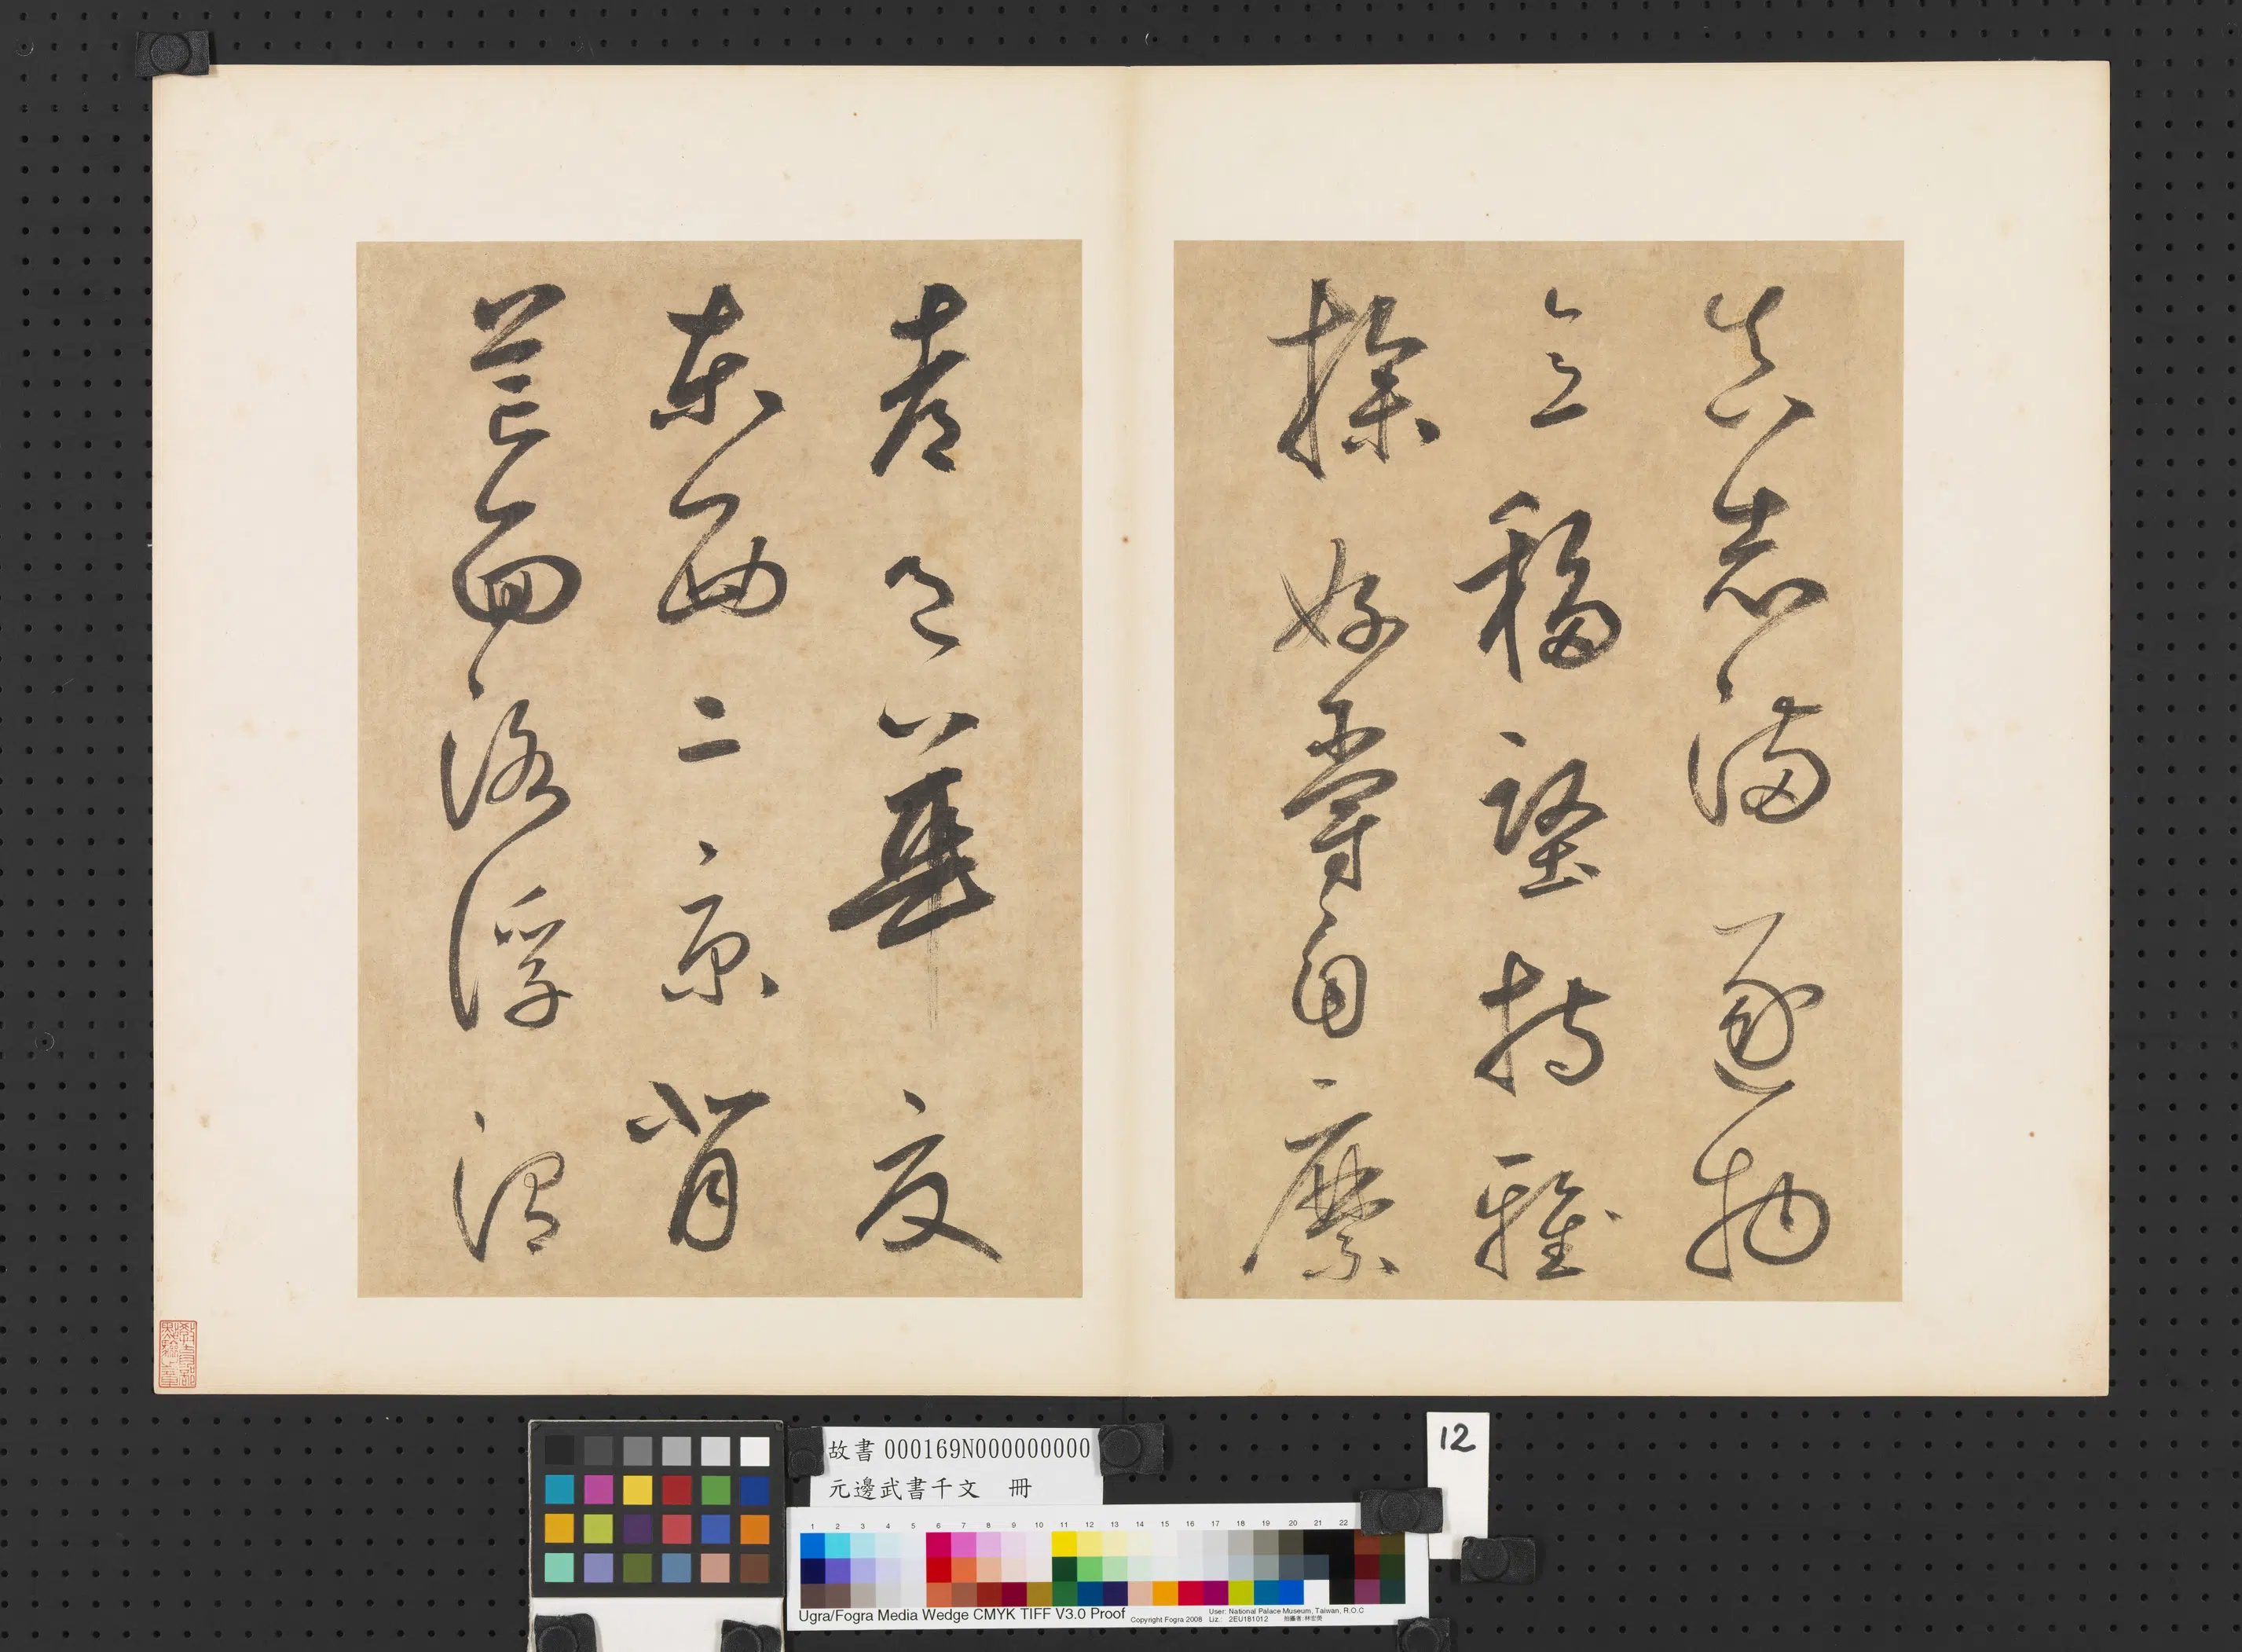 真志滿逐物
意移堅持雅
操好爵自縻
都邑華夏
東西二京背
芒面洛浮渭
12
故書 000169N000000000
元邊武書千文 冊
1 2 3 4 5 6 7 8 9 10 11 12 13 14 15 16 17 18 19 20 21 22
Ugra/Fogra Media Wedge CMYK TIFF V3.0 Proof
Copyright Fogra 2008
User: National Palace Museum, Taiwan, R.O.C
Liz.: 2EU181012